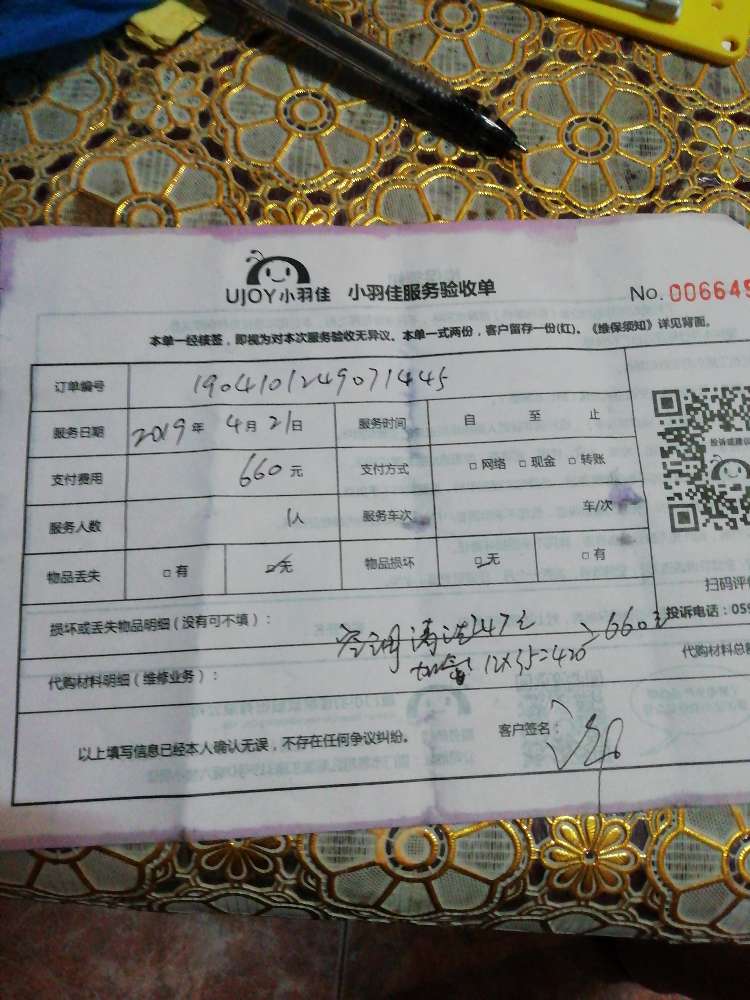 UJOY小羽佳 小羽佳服务验收单 No. 006649
本单一经核签，即视为对本次服务验收无异议。本单一式两份，客户留存一份(红)。《维保须知》详见背面。
订单编号 190410124907144​5
服务日期 2019年 4月21日 服务时间 自 至 止
支付费用 660元 支付方式 □网络 □现金 □转账
投诉或建议
服务人数 1人 服务车次 车/次
物品丢失 □有 ☑无 物品损坏 ☑无 □有
扫码评
损坏或丢失物品明细（没有可不填）：
投诉电话：059
空调清洗247元 660元
代购材料明细（维修业务）： 12×35=420
代购材料总
以上填写信息已经本人确认无误，不存在任何争议纠纷。 客户签名：